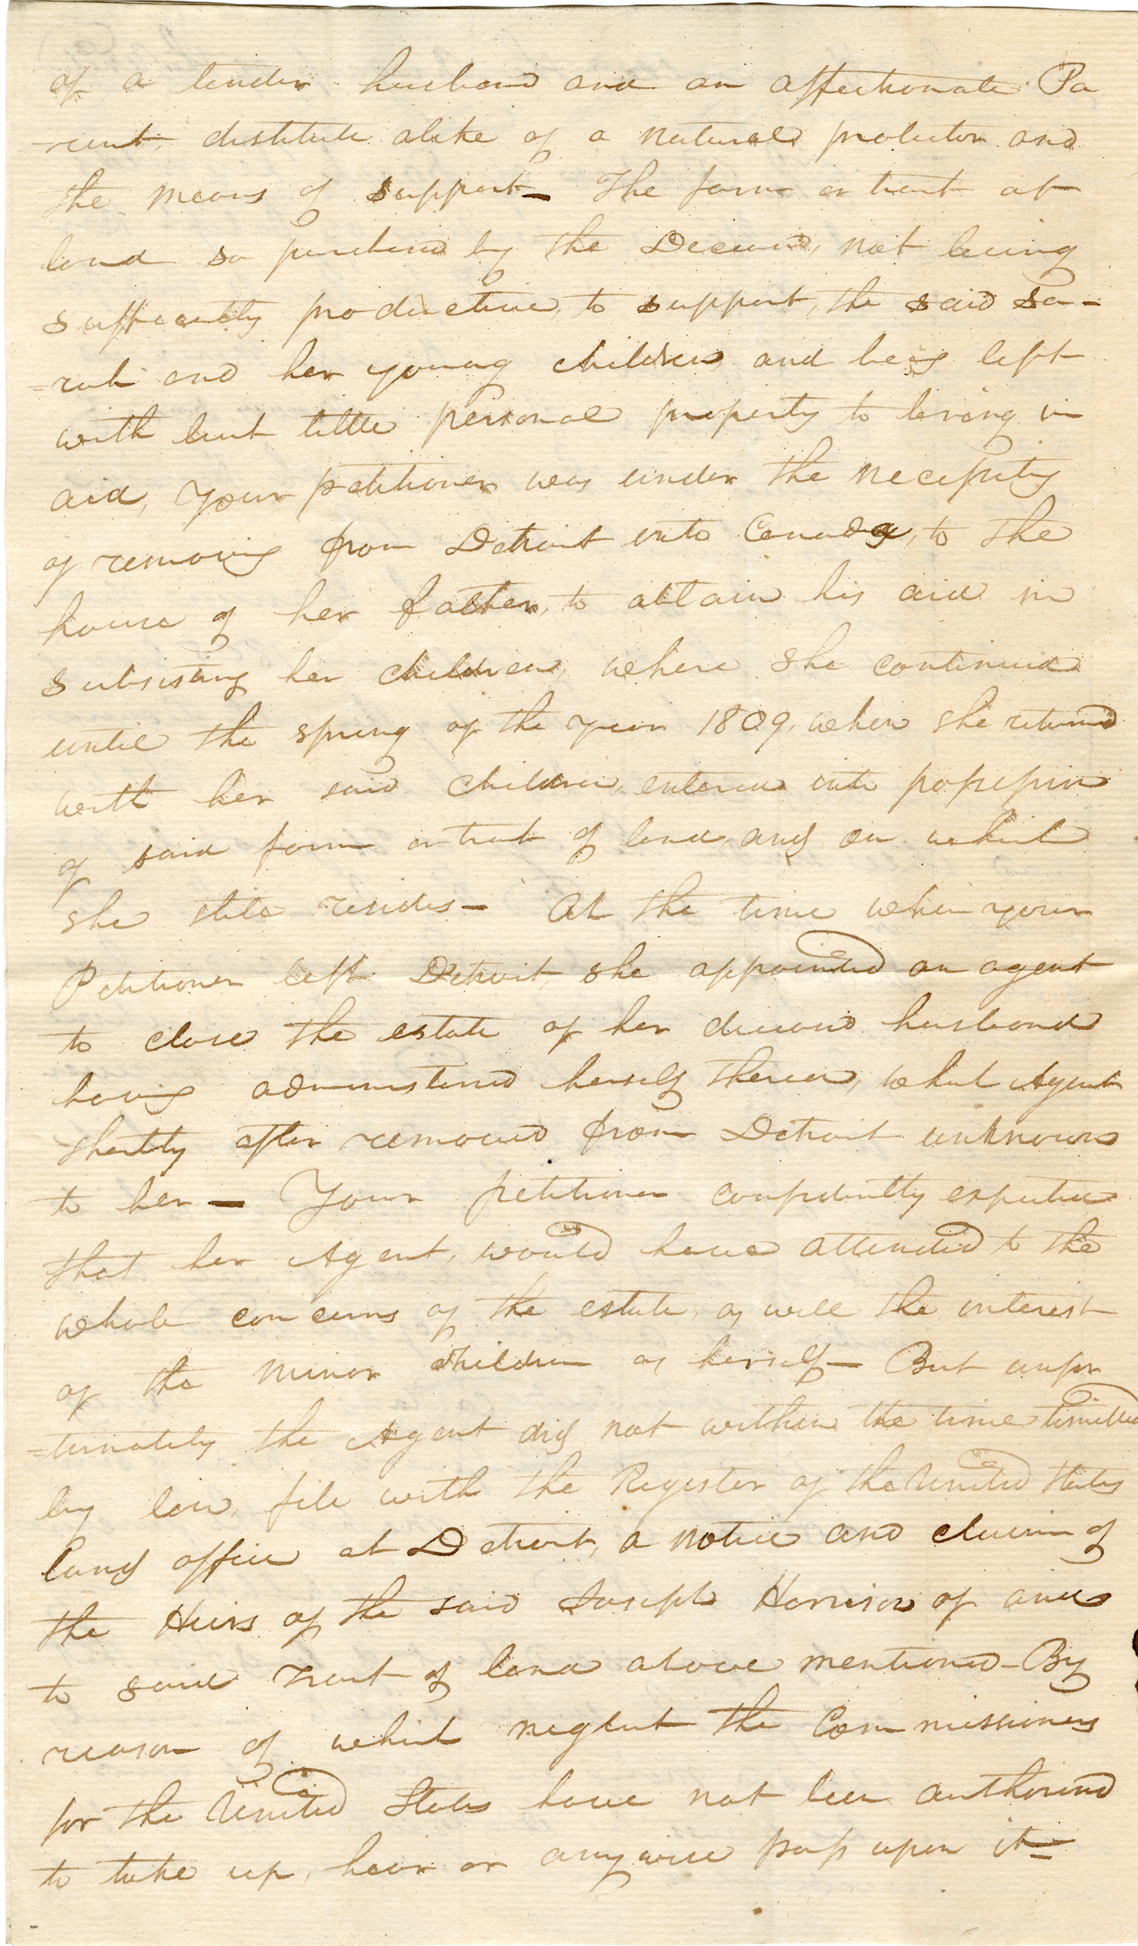 of a tender husband and an affectionate Pa
-rent, distitute alike of a natural protector and
the means of support — The farm or tract of
land so purchased by the Deceased, not being
sufficiently productive, to support, the said Sa-
-rah and her young children, and being left
with but little personal property to bring in
aid, your petitioner was under the necessity
of removing from Detroit into Canada, to the
house of her father, to obtain his aid in
subsisting her children, where she continued
until the spring of the year 1809, when she returned
with her said children, entered into possession
of said farm or tract of land and on which
she still resides — At the time when your
Petitioner left Detroit, she appointed an agent
to close the estate of her deceased husband
having administered herself thereon, which Agent
shortly after removed from Detroit unknown
to her — Your petitioner confidently expected
that her Agent, would have attended to the
whole concerns of the estate, as well the interest
of the minor children as herself — But unfor
-tunately the Agent did not within the time limitted
by law, file with the Register of the United States
land office at Detroit, a notice and claim of
the Heirs of the said Joseph Harrison of and
to said tract of land above mentioned — By
reason of which neglect the Commissioners
for the United States have not been authorised
to take up, hear or any wise pass upon it —